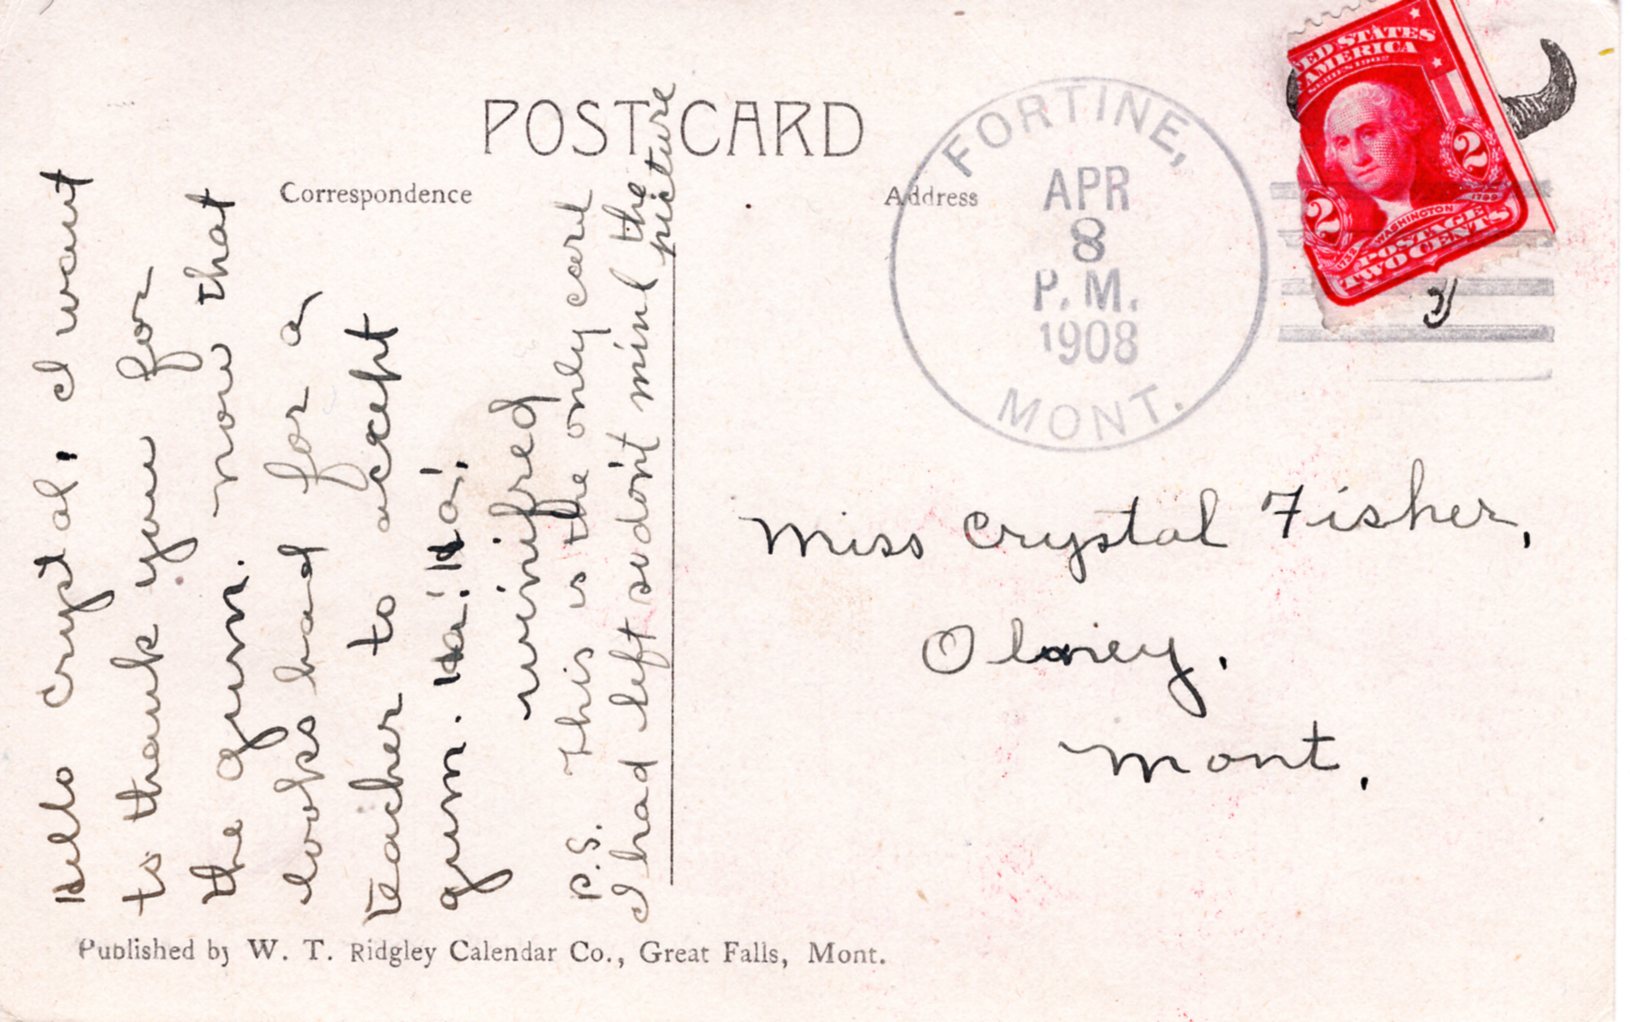 POST CARD
Correspondence
Address
FORTINE,
APR
8
P.M.
1908
MONT.
UNITED STATES
OF AMERICA
SERIES 1902
2
2
1732 WASHINGTON 1799
POSTAGE
TWO CENTS
Hello Crystal. I want
to thank you for
the gum. now that
looks bad for a
teacher to accept
gum. Ha! Ha! Ha!
winifred
P.S. This is the only card
I had left so don't mind the
picture
Miss Crystal Fisher,
Olney.
Mont.
Published by W. T. Ridgley Calendar Co., Great Falls, Mont.